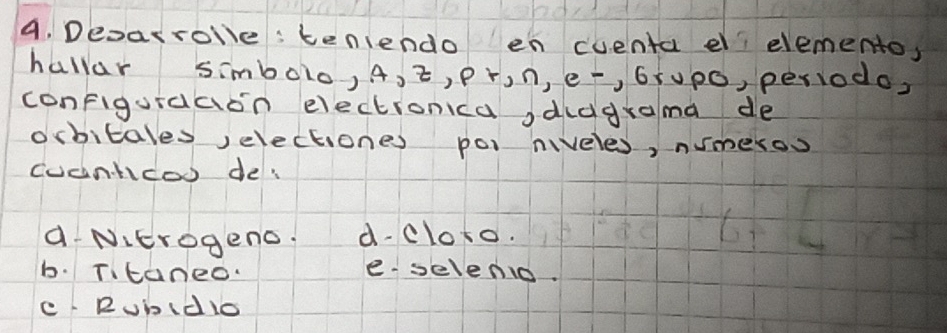 4. Desarrolle: teniendo en cuenta el elemento,
hallar simbolo, A, z, p+, n, e-, Grupo, periodo,
configuración electronica, diagrama de
orbitales, electrones por niveles, numeros
cuanticos de:
a-Nitrogeno. d-Cloro.
b. Titaneo. e-selenio.
c. Rubidio